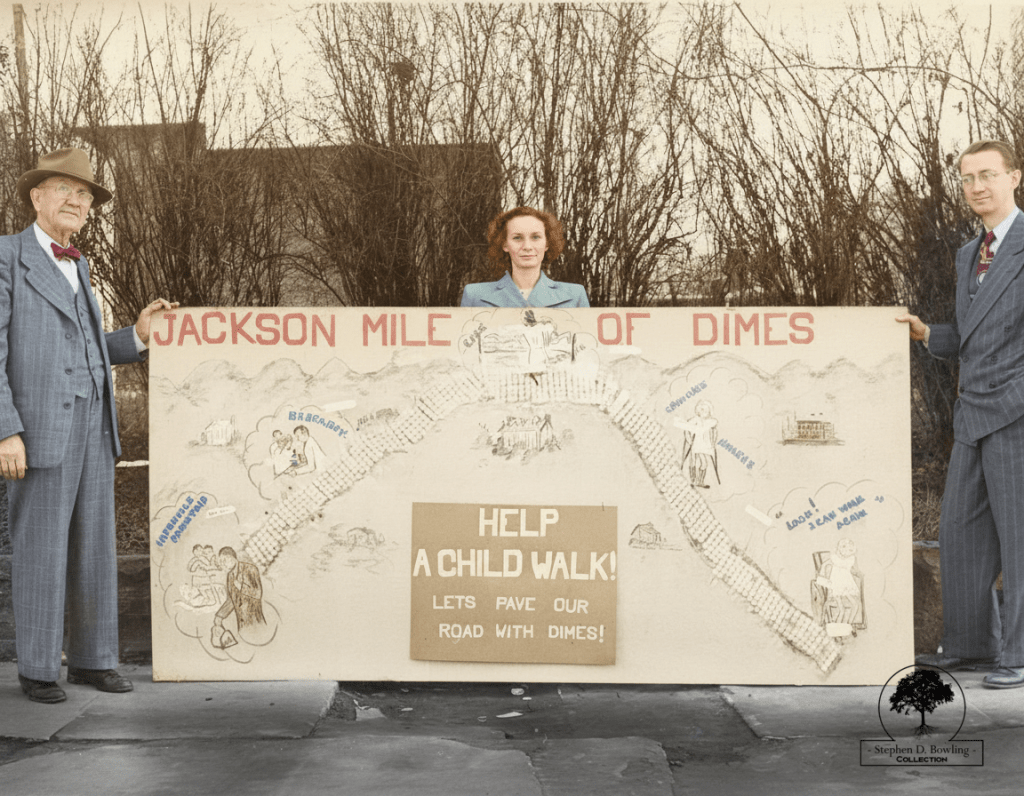 JACKSON MILE OF DIMES
HELP
A CHILD WALK!
LETS PAVE OUR
ROAD WITH DIMES!
"LOOK!
I CAN WALK
AGAIN"
- Stephen D. Bowling -
COLLECTION